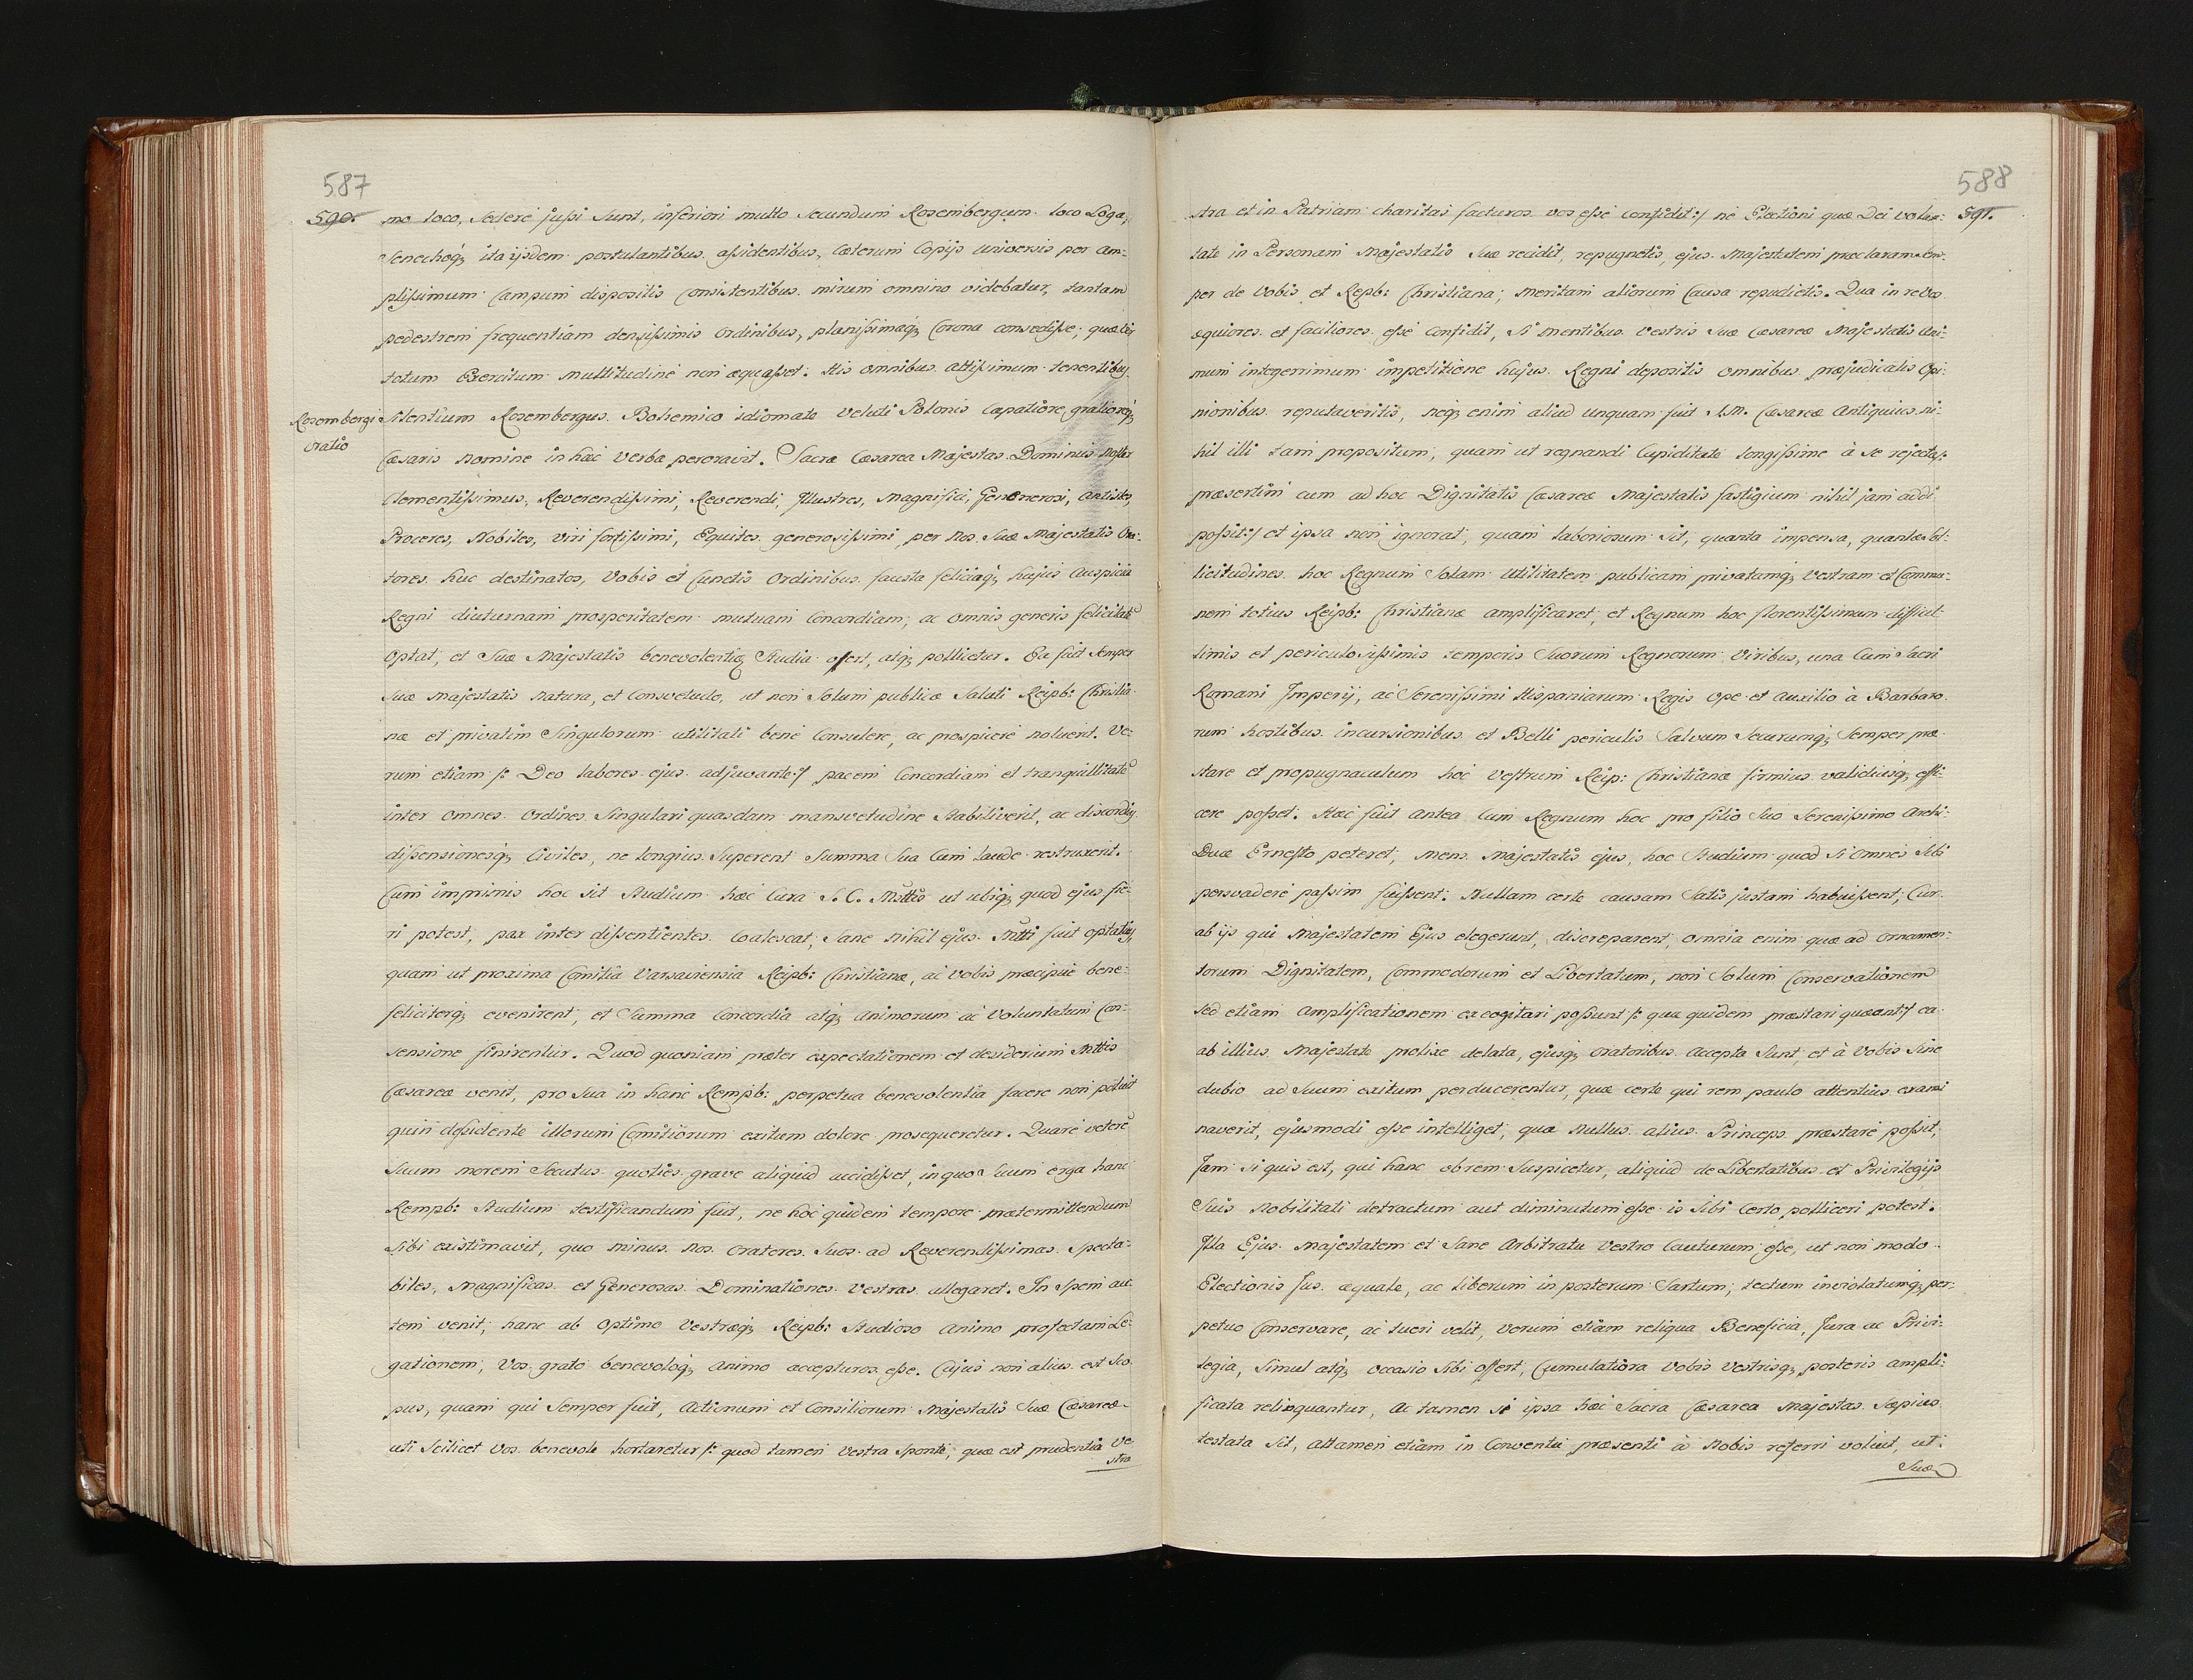 587
590.
mo loco, sedere jussi sunt, inferiori multo secundum Rosembergum loco Loga,
Senechoq; ita ijsdem postulantibus assidentibus, caeterum Copijs universis per am:
plissimum Campum dispositis Consistentibus mirum omnino videbatur, tantam
pedestrem frequentiam densissimis Ordinibus, planissimaq; Corona consedisse, quae
totum Exercitum multitudine non aequasset. His omnibus altissimum tenentibus
Rosembergi
oratio
silentium Rosembergus Bohemico idiomate veluti Polonis Capatiore gratioreq;
Caesaris Nomine in haec verba peroravit. Sacra Caesarea Majestas Dominus noster
Clementissimus, Reverendissimi, Reverendi, Illustres, Magnifici, Genenerosi, Antistes,
Proceres, Nobiles, viri fortissimi, Equites generosissimi, per Nos Suae Majestatis Ora:
tores huc destinatos, Vobis et Cunctis Ordinibus fausta feliciaq; hujus Auspicia
Regni diuturnam prosperitatem mutuam Concordiam, ac omnis generis felicitatē
Optat, et Suae Majestatis benevolentiæ Studia offert, atq; pollicetur. Ea fuit semper
Suae Majestatis Natura, et Consvetudo, ut non Solum publicae Saluti Reipb: Christia-
nae et privatim Singulorum utilitati bene Consulere, ac prospicere noluerit. Ve:
rum etiam /: Deo labores ejus adjuvante :/ pacem Concordiam et tranquillitatē
inter omnes Ordines Singulari quasdam mansvetudine Stabiliverit, ac discordijs
dissensionesq; Civiles, ne longius Superent Summa Sua Cum laude restruxerit.
Cum imprimis hoc sit Studium haec Cura S. C. Mttis ut ubiq; quod ejus fie:
ri potest, pax inter dissentientes Coalescat, Sane Nihil ejus Mtti fuit optatius,
quam ut proxima Comitia Varsaviensia Reipb: Christianae, ac Vobis praecipue bene:
feliciterq; evenirent, et Summa Concordia atq; Animorum ac Voluntatum Con:
sensione finirentur. Quod quoniam praeter expectationem et desiderium Mttis
Caesareae venit, pro Sua in hanc Rempb: perpetua benevolentia facere non potuit
quin dessidente illorum Comitiorum exitum dolore prosequeretur. Quare veterē
Suum morem Secutus quoties grave aliquid accidisset, in quo Suum erga hanc
Rempb: Studium testificandum fuit, ne hoc quidem tempore praetermittendum
Sibi existimavit, quo minus Nos Oratores Suos ad Reverendissimas Specta:
biles, Magnificas et Generosas Dominationes Vestras allegaret. In Spem au:
tem venit, hanc ab Optimo Vestraeq; Reipb: Studioso Animo profectam Le:
gationem, Vos grato benevoloq; Animo accepturos esse. Cujus non alius est Sco:
pus, quam qui Semper fuit, Actionum et Consiliorum Majestatis Suae Caesareae
uti Scilicet Vos benevole hortaretur /: quod tamen Vestra Sponte, quae est prudentia Ve
stra
588
591.
stra et in Patriam charitas facturos vos esse confidit :/ ne Electioni quae Dei volun:
tate in Personam Majestatis Suae recidit, repugnetis, ejus Majestatem praeclaram sem:
per de Vobis et Repb: Christiana, Meritam aliorum Causa repudietis. Qua in re Vos
aequiores et faciliores esse Confidit, Si mentibus Vestris Suae Caesareae Majestatis Ani:
mum integerrimum impetitione hujus Regni depositis omnibus praejudicatis Opi:
nionibus reputaveritis, Neq; enim aliud unquam fuit M. Caesareae Antiquius, ni:
hil illi tam propositum, quam ut regnandi Cupiditate longissime à Se rejecta /:
praesertim cum ad hoc Dignitatis Caesareae Majestatis fastigium nihil jam addi
possit :/ et ipsa non ignorat, quam laboriosum sit, quanta impensa, quantae Sol:
licitudines hoc Regnum Solam Utilitatem publicam privatamq; Vestram et Commu:
nem totius Reipb: Christianae amplificaret, et Regnum hoc florentissimum difficil
limis et periculosissimis temporis Suorum Regnorum Viribus, una Cum Sacri
Romani Imperij, ac Serenissimi Hispaniarum Regis Ope et Auxilio à Barbaro
rum hostibus incursionibus et Belli periculis Salvum Securumq; Semper prae
stare et propugnaculum hoc Vestrum Reip: Christianae firmius validiusq; effi:
cere posset. Haec fuit antea Cum Regnum hoc pro filio Suo Serenissimo Archi:
Duce Ernesto peteret, Mens Majestatis ejus, hoc Studium quod Si omnes Sibi
persvadere passim fuissent. Nullam certe causam Satis justam habuissent, Cur
ab ijs qui Majestatem Ejus elegerunt, discreparent, omnia enim quae ad Ornamen:
torum Dignitatem, Commodorum et Libertatum, non Solum Conservationem
sed etiam Amplificationem excogitari possunt /: quae quidem praestari queant :/ ea
ab illius Majestate prolixe delata, ejusq; Oratoribus Accepta Sunt et à Vobis Sine
dubio ad Suum exitum perducerentur, quae certe qui rem paulo attentius exami
naverit, ejusmodi esse intelliget, quae Nullus alius Princeps praestare possit,
Jam Si quis est, qui hanc ob rem Suspicetur, aliquid de Libertatibus et Privilegijs
Suis Nobilitati detractum aut diminutum esse is Sibi Certo polliceri potest.
Illa Ejus Majestatem et Sane Arbitratu Vestro Cauturum esse, ut non modo
Electionis Jus aequale, ac liberum in posterum Sartum, tectum inviolatumq; per:
petuo Conservare, ac tueri velit, verum etiam reliqua Beneficia, Jura ac Privi:
legia, Simul atq; occasio Sibi offert, Cumulatiora Vobis Vestrisq; posteris ampli:
ficata relinquantur, Ac tamen si ipsa haec Sacra Caesarea Majestas Saepius
testata Sit, Attamen etiam in Conventu praesenti à Nobis referri voluit, ut
Suae